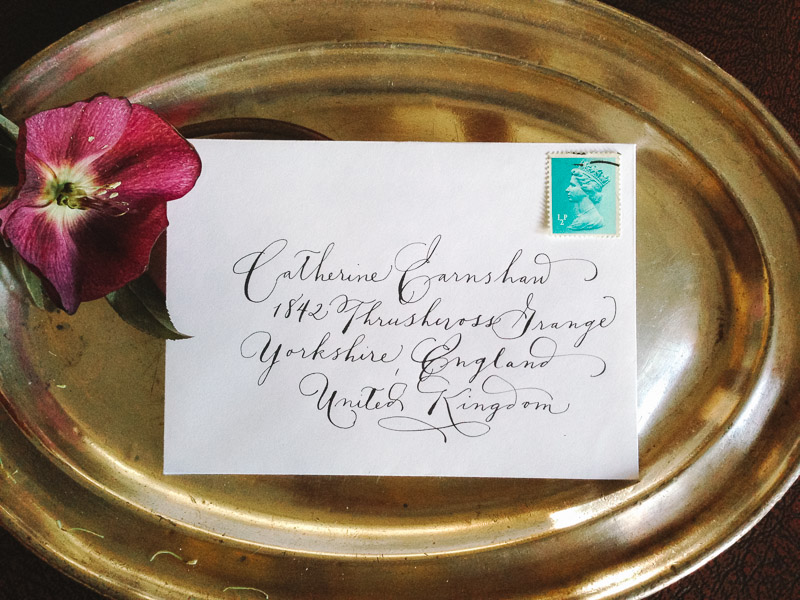 ½P
Catherine Earnshaw
1842 Thrushcross Grange
Yorkshire, England
United Kingdom